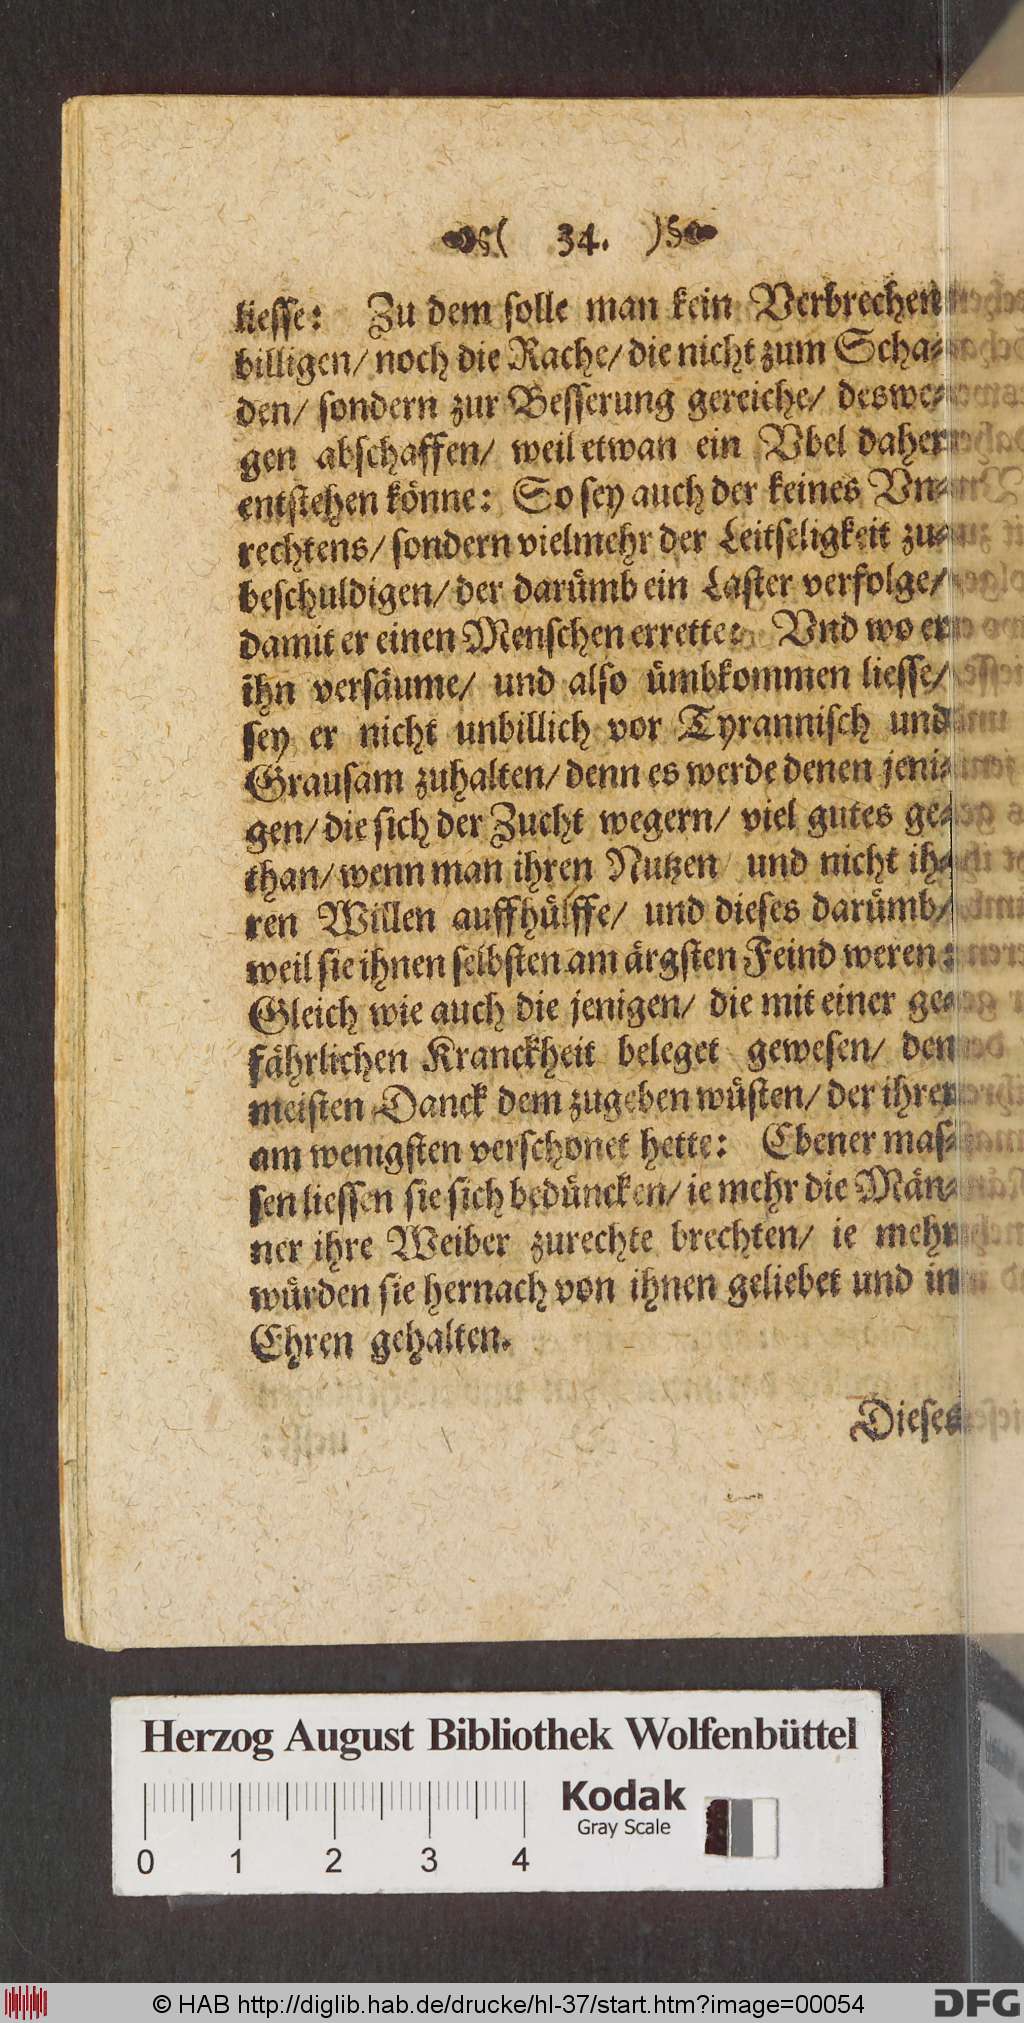 §( 34. )§
liesse: Zu dem solle man kein Verbrechen
billigen/ noch die Rache/ die nicht zum Scha-
den/ sondern zur Besserung gereiche/ deswe-
gen abschaffen/ weil etwan ein Vbel daher
entstehen könne: So sey auch der keines Vn-
rechtens/ sondern vielmehr der Leitseligkeit zu-
beschuldigen/ der darümb ein Laster verfolge/
damit er einen Menschen errette: Vnd wo er
ihn versäume/ und also ümbkommen liesse/
sey er nicht unbillich vor Tyrannisch und
Grausam zuhalten/ denn es werde denen jeni-
gen/ die sich der Zucht wegern/ viel gutes ge-
than/ wenn man ihren Nutzen/ und nicht ih-
ren Willen auffhülffe/ und dieses darümb/
weil sie ihnen selbsten am ärgsten Feind weren:
Gleich wie auch die jenigen/ die mit einer ge-
fährlichen Kranckheit beleget gewesen/ den
meisten Danck dem zugeben wüsten/ der ihrer
am wenigsten verschonet hette: Ebener mas-
sen liessen sie sich bedüncken/ ie mehr die Män-
ner ihre Weiber zurechte brechten/ ie mehr
würden sie hernach von ihnen geliebet und in
Ehren gehalten.
Dieses
Herzog August Bibliothek Wolfenbüttel
0 1 2 3 4
Kodak
Gray Scale
© HAB http://diglib.hab.de/drucke/hl-37/start.htm?image=00054
DFG